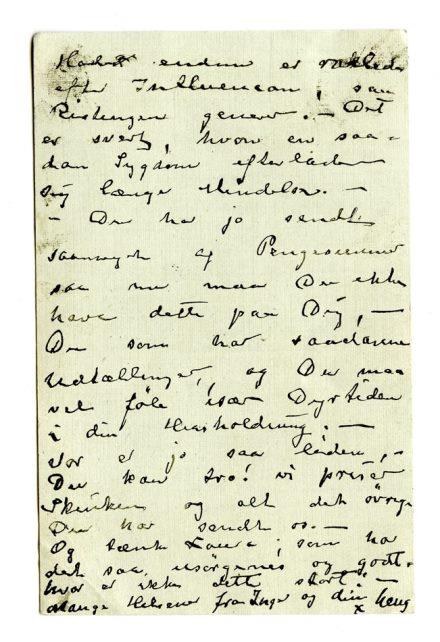 Hodet endnu er
efter Influenzan, saa
Ristingen generer. — Det
er svert, hvor en saa=
dan Sygdom efterlader
sig længe Mindelse. —
— Du ha jo sendt
saameget af Pengesummer
saa nu maa Du ikke
have dette paa Dig, —
Du som har saadanne
Udtællinger, og Du maa
vel føle især Dyrtiden
i din Husholdning. —
Vor er jo saa liden, —
Du kan tro! vi priser
Skinken og alt det øvrige
Du har sendt os. —
Og tænk Laura; som har
det saa og godt. —
hvor er ikke dette stort. —
Mange Hilsener fra Inge og din